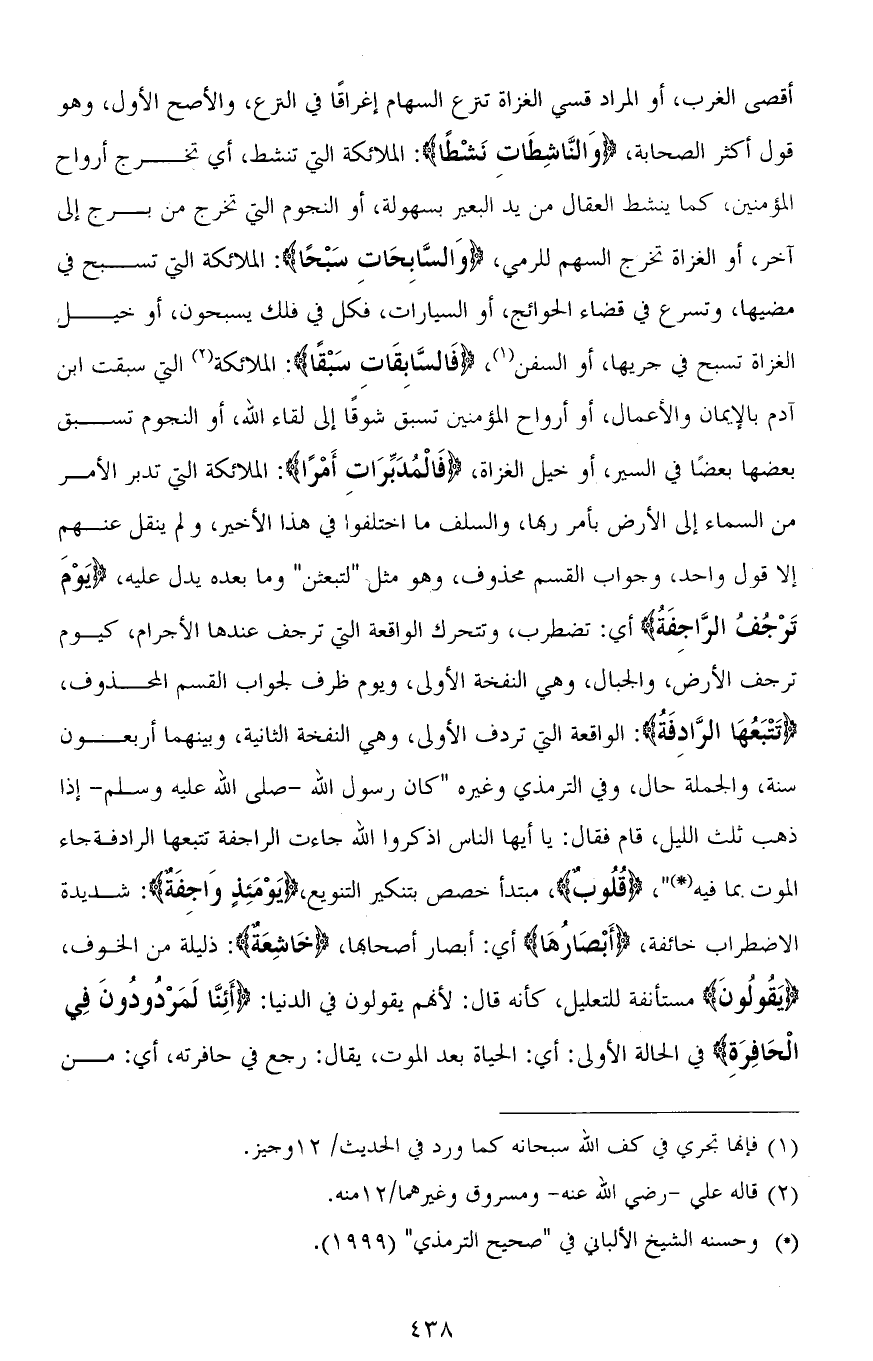 أقصى الغرب، أو المراد قسي الغزاة تنزع السهام إغراقًا في النزع، والأصح الأول، وهو
قول أكثر الصحابة، ﴿وَالنَّاشِطَاتِ نَشْطًا﴾: الملائكة التي تنشط، أي تخرج أرواح
المؤمنين، كما ينشط العقال من يد البعير بسهولة، أو النجوم التي تخرج من برج إلى
آخر، أو الغزاة تخرج السهم للرمي، ﴿وَالسَّابِحَاتِ سَبْحًا﴾: الملائكة التي تسبح في
مضيها، وتسرع في قضاء الحوائج، أو السيارات، فكل في فلك يسبحون، أو خيل
الغزاة تسبح في جريها، أو السفن(١)، ﴿فَالسَّابِقَاتِ سَبْقًا﴾: الملائكة(٢) التي سبقت ابن
آدم بالإيمان والأعمال، أو أرواح المؤمنين تسبق شوقًا إلى لقاء الله، أو النجوم تسبق
بعضها بعضًا في السير، أو خيل الغزاة، ﴿فَالْمُدَبِّرَاتِ أَمْرًا﴾: الملائكة التي تدبر الأمر
من السماء إلى الأرض بأمر ربها، والسلف ما اختلفوا في هذا الأخير، و لم ينقل عنهم
إلا قول واحد، وجواب القسم محذوف، وهو مثل "لتبعثن" وما بعده يدل عليه، ﴿يَوْمَ
تَرْجُفُ الرَّاجِفَةُ﴾ أي: تضطرب، وتتحرك الواقعة التي ترجف عندها الأجرام، كيوم
ترجف الأرض، والجبال، وهي النفخة الأولى، ويوم ظرف لجواب القسم المحذوف،
﴿تَتْبَعُهَا الرَّادِفَةُ﴾: الواقعة التي تردف الأولى، وهي النفخة الثانية، وبينهما أربعون
سنة، والجملة حال، وفي الترمذي وغيره "كان رسول الله -صلى الله عليه وسلم- إذا
ذهب ثلث الليل، قام فقال: يا أيها الناس اذكروا الله جاءت الراجفة تتبعها الرادفة جاء
الموت بما فيه(*)"، ﴿قُلُوبٌ﴾، مبتدأ خصص بتنكير التنويع،﴿يَوْمَئِذٍ وَاجِفَةٌ﴾: شديدة
الاضطراب خائفة، ﴿أَبْصَارُهَا﴾ أي: أبصار أصحابها، ﴿خَاشِعَةٌ﴾: ذليلة من الخوف،
﴿يَقُولُونَ﴾ مستأنفة للتعليل، كأنه قال: لأنهم يقولون في الدنيا: ﴿أَئِنَّا لَمَرْدُودُونَ فِي
الْحَافِرَةِ﴾ في الحالة الأولى: أي: الحياة بعد الموت، يقال: رجع في حافرته، أي: من
(١) فإنها تجري في كف الله سبحانه كما ورد في الحديث/ ١٢وجيز.
(٢) قاله علي -رضي الله عنه- ومسروق وغيرهما/١٢منه.
(*) وحسنه الشيخ الألباني في "صحيح الترمذي" (١٩٩٩).
٤٣٨